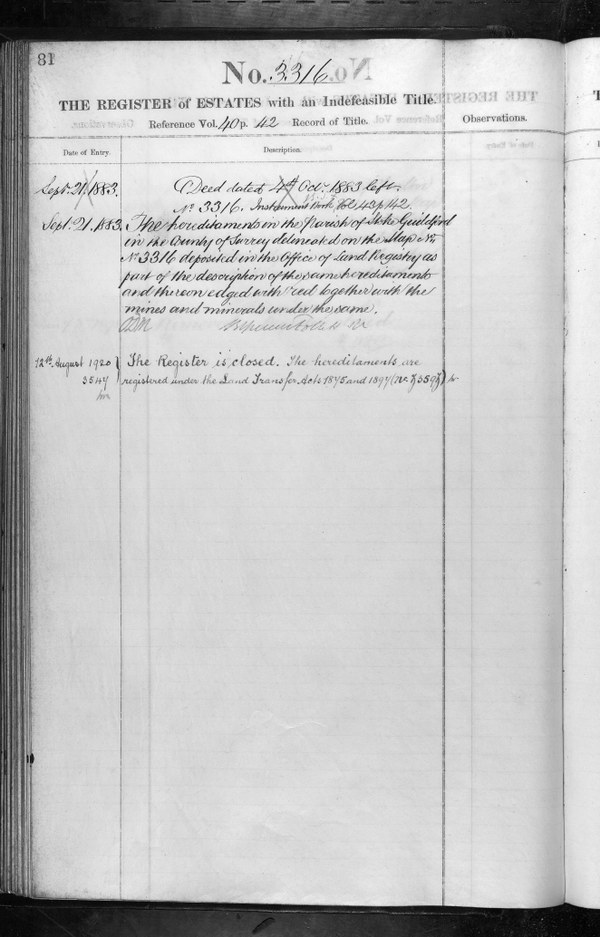 81
No. 3316
THE REGISTER of ESTATES with an Indefeasible Title.
Reference Vol. 40 p. 42 Record of Title.
Observations.
Date of Entry.
Description.
Sept. 21. 1883.
Deed dated 4th Oct. 1883 left
No 3316. Instrument Book, Vol 43 p 42.
Sept. 21. 1883.
The hereditaments in the Parish of Stoke Guildford
in the County of Surrey delineated on the Map
No 3316 deposited in the Office of Land Registry as
part of the description of the same hereditaments
and thereon edged with red together with the
mines and minerals under the same.
12th August 1920
3547
The Register is closed. The hereditaments are
registered under the Land Transfer Acts 1875 and 1897